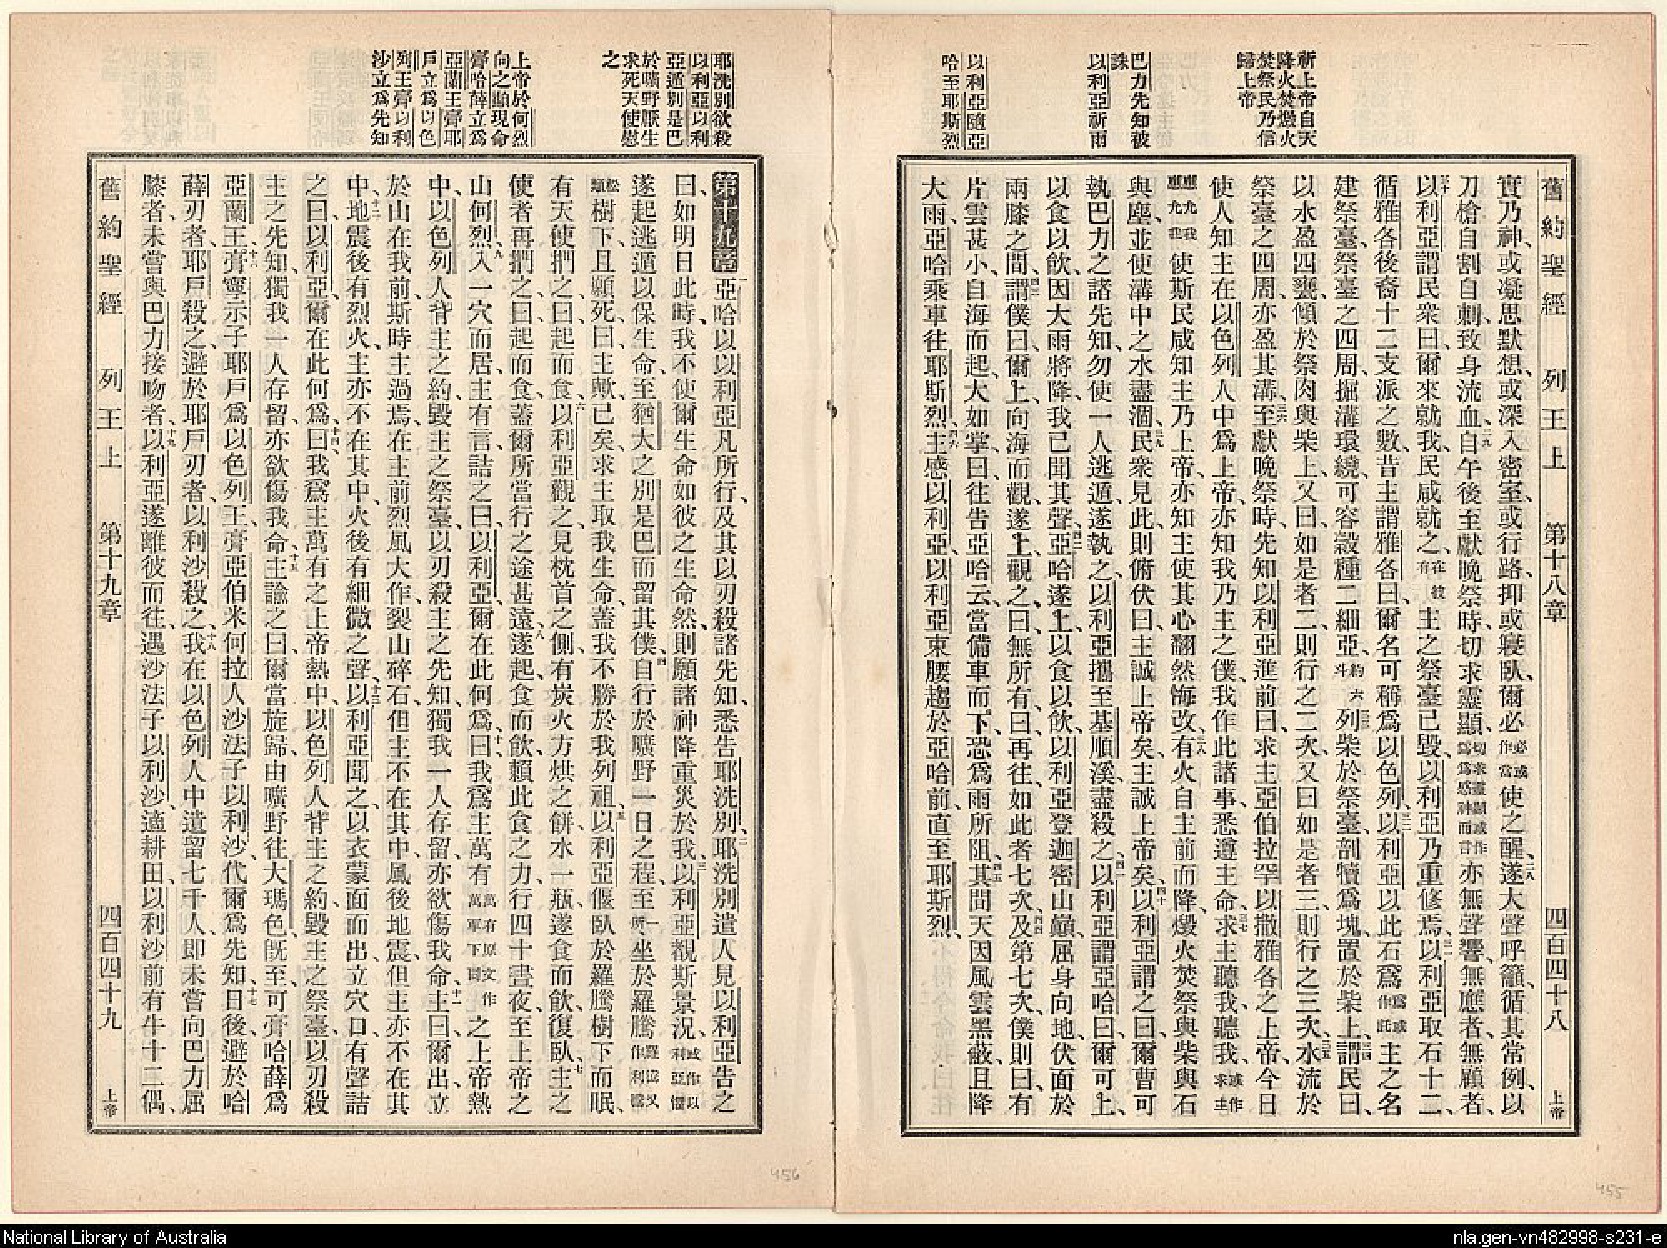 祈上帝自天
降火焚燬火
焚祭民乃信
歸上帝
巴力先知被
誅
以利亞祈雨
以利亞隨亞
哈至耶斯烈
舊約聖經 列王上 第十八章 四百四十八 上帝
實乃神、或凝思默想、或深入密室、或行路、抑或寢臥、爾必必或作當使之醒、遂大聲呼籲、循其常例、以
刀槍自割自刺、致身流血、自午後至獻晚祭時、切求靈顯、切求靈顯或作為感神而言亦無聲響、無應者、無顧者、
以利亞謂民衆曰、爾來就我、民咸就之、在彼有主之祭臺已毀、以利亞乃重修焉、以利亞取石十二、
循雅各後裔十二支派之數、昔主謂雅各曰、爾名可稱為以色列、以利亞以此石為為或作託主之名
建祭臺、祭臺之四周、掘溝環繞、可容穀種二細亞、約六斗列柴於祭臺、剖犢為塊、置於柴上、謂民曰、
以水盈四甕、傾於祭肉與柴上、又曰、如是者二、則行之二次、又曰、如是者三、則行之三次、水流於
祭臺之四周、亦盈其溝、至獻晚祭時、先知以利亞進前曰、求主亞伯拉罕以撒雅各之上帝、今日
使人知主在以色列人中為上帝、亦知我乃主之僕、我作此諸事、悉遵主命、求主聽我、聽我、求主或作
應允我應允我使斯民咸知主乃上帝、亦知主使其心翻然悔改、有火自主前而降、燬火焚祭與柴與石
與塵、並使溝中之水盡涸、民衆見此、則俯伏曰、主誠上帝矣、主誠上帝矣、以利亞謂之曰、爾曹可
執巴力之諸先知、勿使一人逃遁、遂執之、以利亞攜至基順溪、盡殺之、以利亞謂亞哈曰、爾可上、
以食以飲、因大雨將降、我已聞其聲、亞哈遂上以食以飲、以利亞登迦密山巔、屈身向地、伏面於
兩膝之間、謂僕曰、爾上向海而觀、遂上觀之、曰、無所有、曰、再往、如此者七次、及第七次、僕則曰、有
片雲甚小、自海而起、大如掌、曰、往告亞哈云、當備車而下、恐為雨所阻、其間、天因風雲黑蔽、且降
大雨、亞哈乘車往耶斯烈、主感以利亞、以利亞束腰、趨於亞哈前、直至耶斯烈、
耶洗別欲殺
以利亞以利
亞遁別是巴
於曠野厭生
求死天使慰
之
上帝於何烈
向之顯現命
膏哈薛立為
亞蘭王膏耶
戶立為以色
列王膏以利
沙立為先知
第十九章 亞哈以以利亞凡所行、及其以刃殺諸先知、悉告耶洗別、耶洗別遣人見以利亞告之
曰、如明日此時、我不使爾生命如彼之生命、然則願諸神降重災於我、以利亞觀斯景況、或作以利亞懼
遂起逃遁、以保生命、至猶大之別是巴、而留其僕、自行於曠野一日之程、至一所、坐於羅騰羅騰又作利騰
松類樹下、且願死、曰、主歟、已矣、求主取我生命、蓋我不勝於我列祖、以利亞偃臥於羅騰樹下而眠、
有天使捫之曰、起而食、以利亞觀之、見枕首之側、有炭火方烘之餅、水一瓶、遂食而飲、復臥、主之
使者再捫之曰、起而食、蓋爾所當行之途甚遠、遂起、食而飲、賴此食之力、行四十晝夜、至上帝之
山何烈、入一穴而居、主有言詰之曰、以利亞、爾在此何為、曰、我為主萬有萬有原文作萬軍下同之上帝熱
中、以色列人背主之約、毀主之祭臺、以刃殺主之先知、獨我一人存留、亦欲傷我命、主曰、爾出、立
於山在我前、斯時主過焉、在主前烈風大作、裂山碎石、但主不在其中、風後地震、但主亦不在其
中、地震後有烈火、主亦不在其中、火後有細微之聲、以利亞聞之、以衣蒙面而出、立穴口、有聲詰
之曰、以利亞、爾在此何為、曰、我為主萬有之上帝熱中、以色列人背主之約、毀主之祭臺、以刃殺
主之先知、獨我一人存留、亦欲傷我命、主諭之曰、爾當旋歸、由曠野往大瑪色、旣至、可膏哈薛為
亞蘭王、膏寧示子耶戶為以色列王、膏亞伯米何拉人沙法子以利沙、代爾為先知、日後避於哈
薛刃者、耶戶殺之、避於耶戶刃者、以利沙殺之、我在以色列人中遺留七千人、即未嘗向巴力屈
膝者、未嘗與巴力接吻者、以利亞遂離彼而往、遇沙法子以利沙適耕田、以利沙前有牛十二偶、
舊約聖經 列王上 第十九章 四百四十九 上帝
456
455
National Library of Australia
nla.gen-vn482998-s231-e